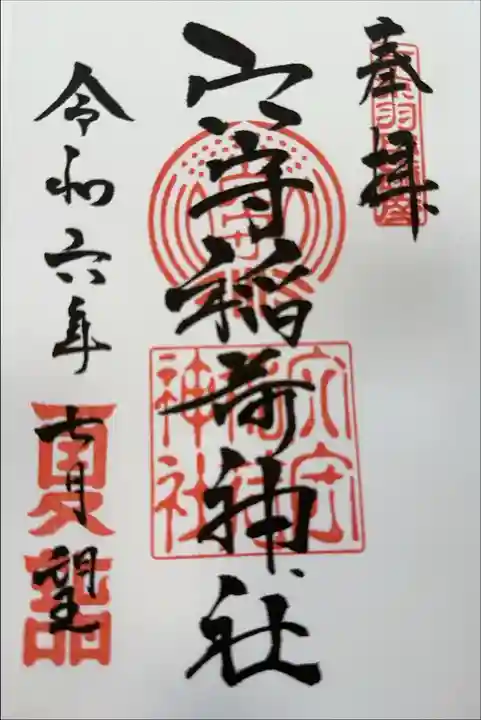 奉拝
穴守稲荷神社
令和六年
七月望
夏詣
穴守
稲荷
神社